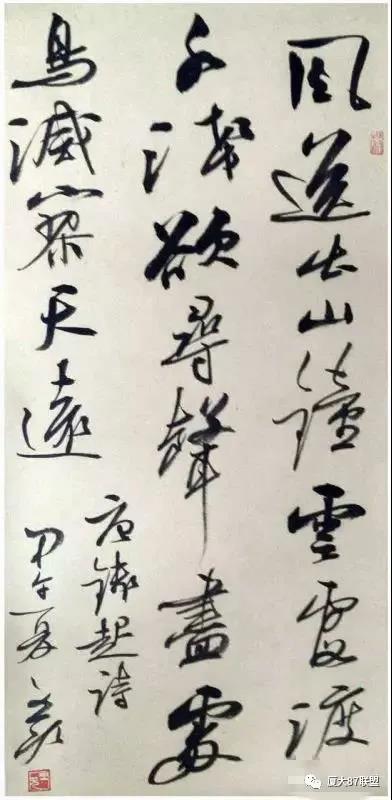 風送出山鐘雲霞渡
水淺欲尋聲盡處
鳥滅寥天遠
唐錢起詩
甲午夏
厦大87联盟